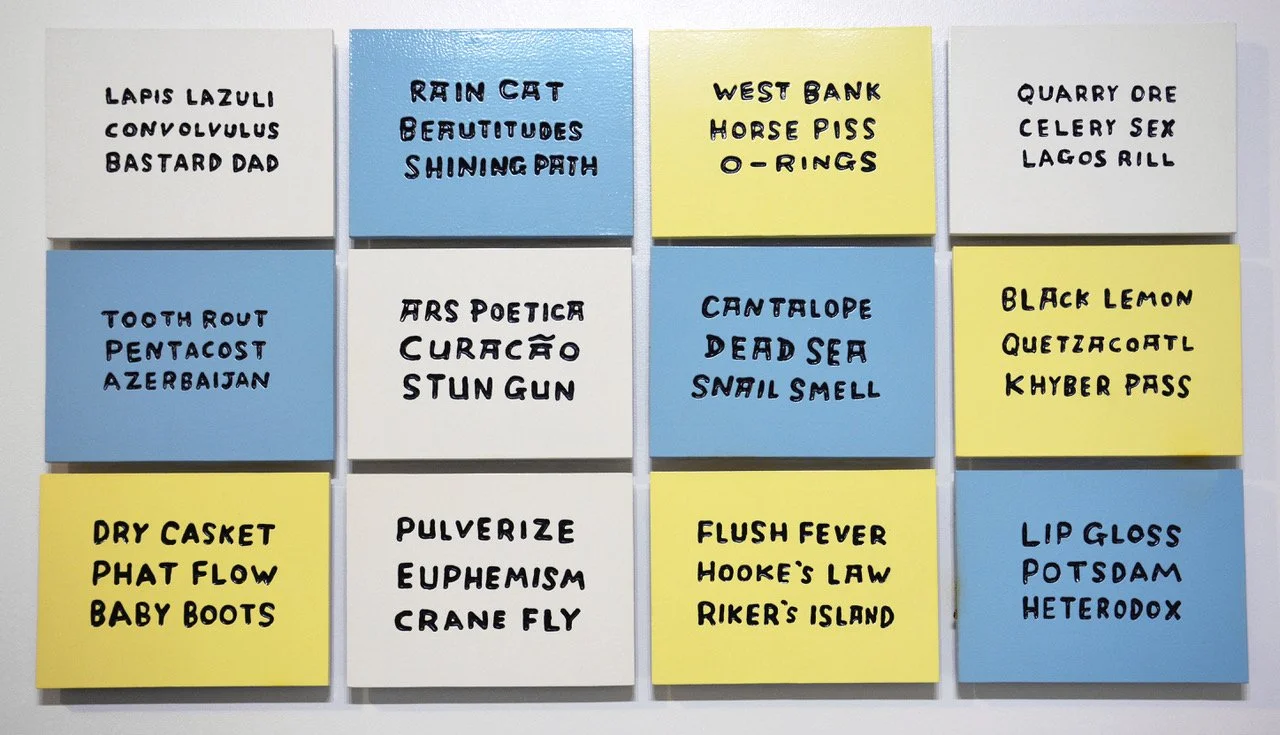 LAPIS LAZULI
CONVOLVULUS
BASTARD DAD
RAIN CAT
BEAUTITUDES
SHINING PATH
WEST BANK
HORSE PISS
O-RINGS
QUARRY ORE
CELERY SEX
LAGOS RILL
TOOTH ROUT
PENTACOST
AZERBAIJAN
ARS POETICA
CURACÃO
STUN GUN
CANTALOPE
DEAD SEA
SNAIL SMELL
BLACK LEMON
QUETZACOATL
KHYBER PASS
DRY CASKET
PHAT FLOW
BABY BOOTS
PULVERIZE
EUPHEMISM
CRANE FLY
FLUSH FEVER
HOOKE'S LAW
RIKER'S ISLAND
LIP GLOSS
POTSDAM
HETERODOX